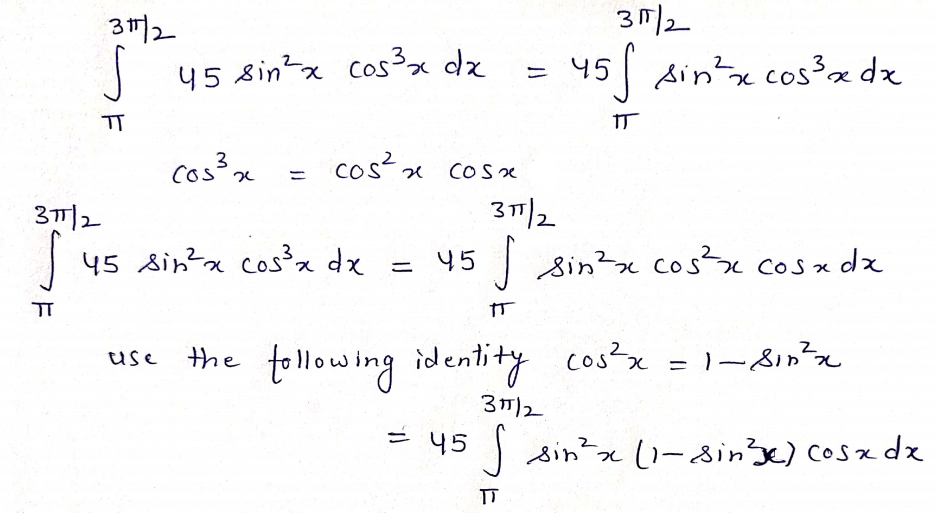 ∫_π^{3π/2} 45 sin²x cos³x dx = 45 ∫_π^{3π/2} sin²x cos³x dx
cos³x = cos²x cosx
∫_π^{3π/2} 45 sin²x cos³x dx = 45 ∫_π^{3π/2} sin²x cos²x cosx dx
use the following identity cos²x = 1 - sin²x
= 45 ∫_π^{3π/2} sin²x (1 - sin²x) cosx dx